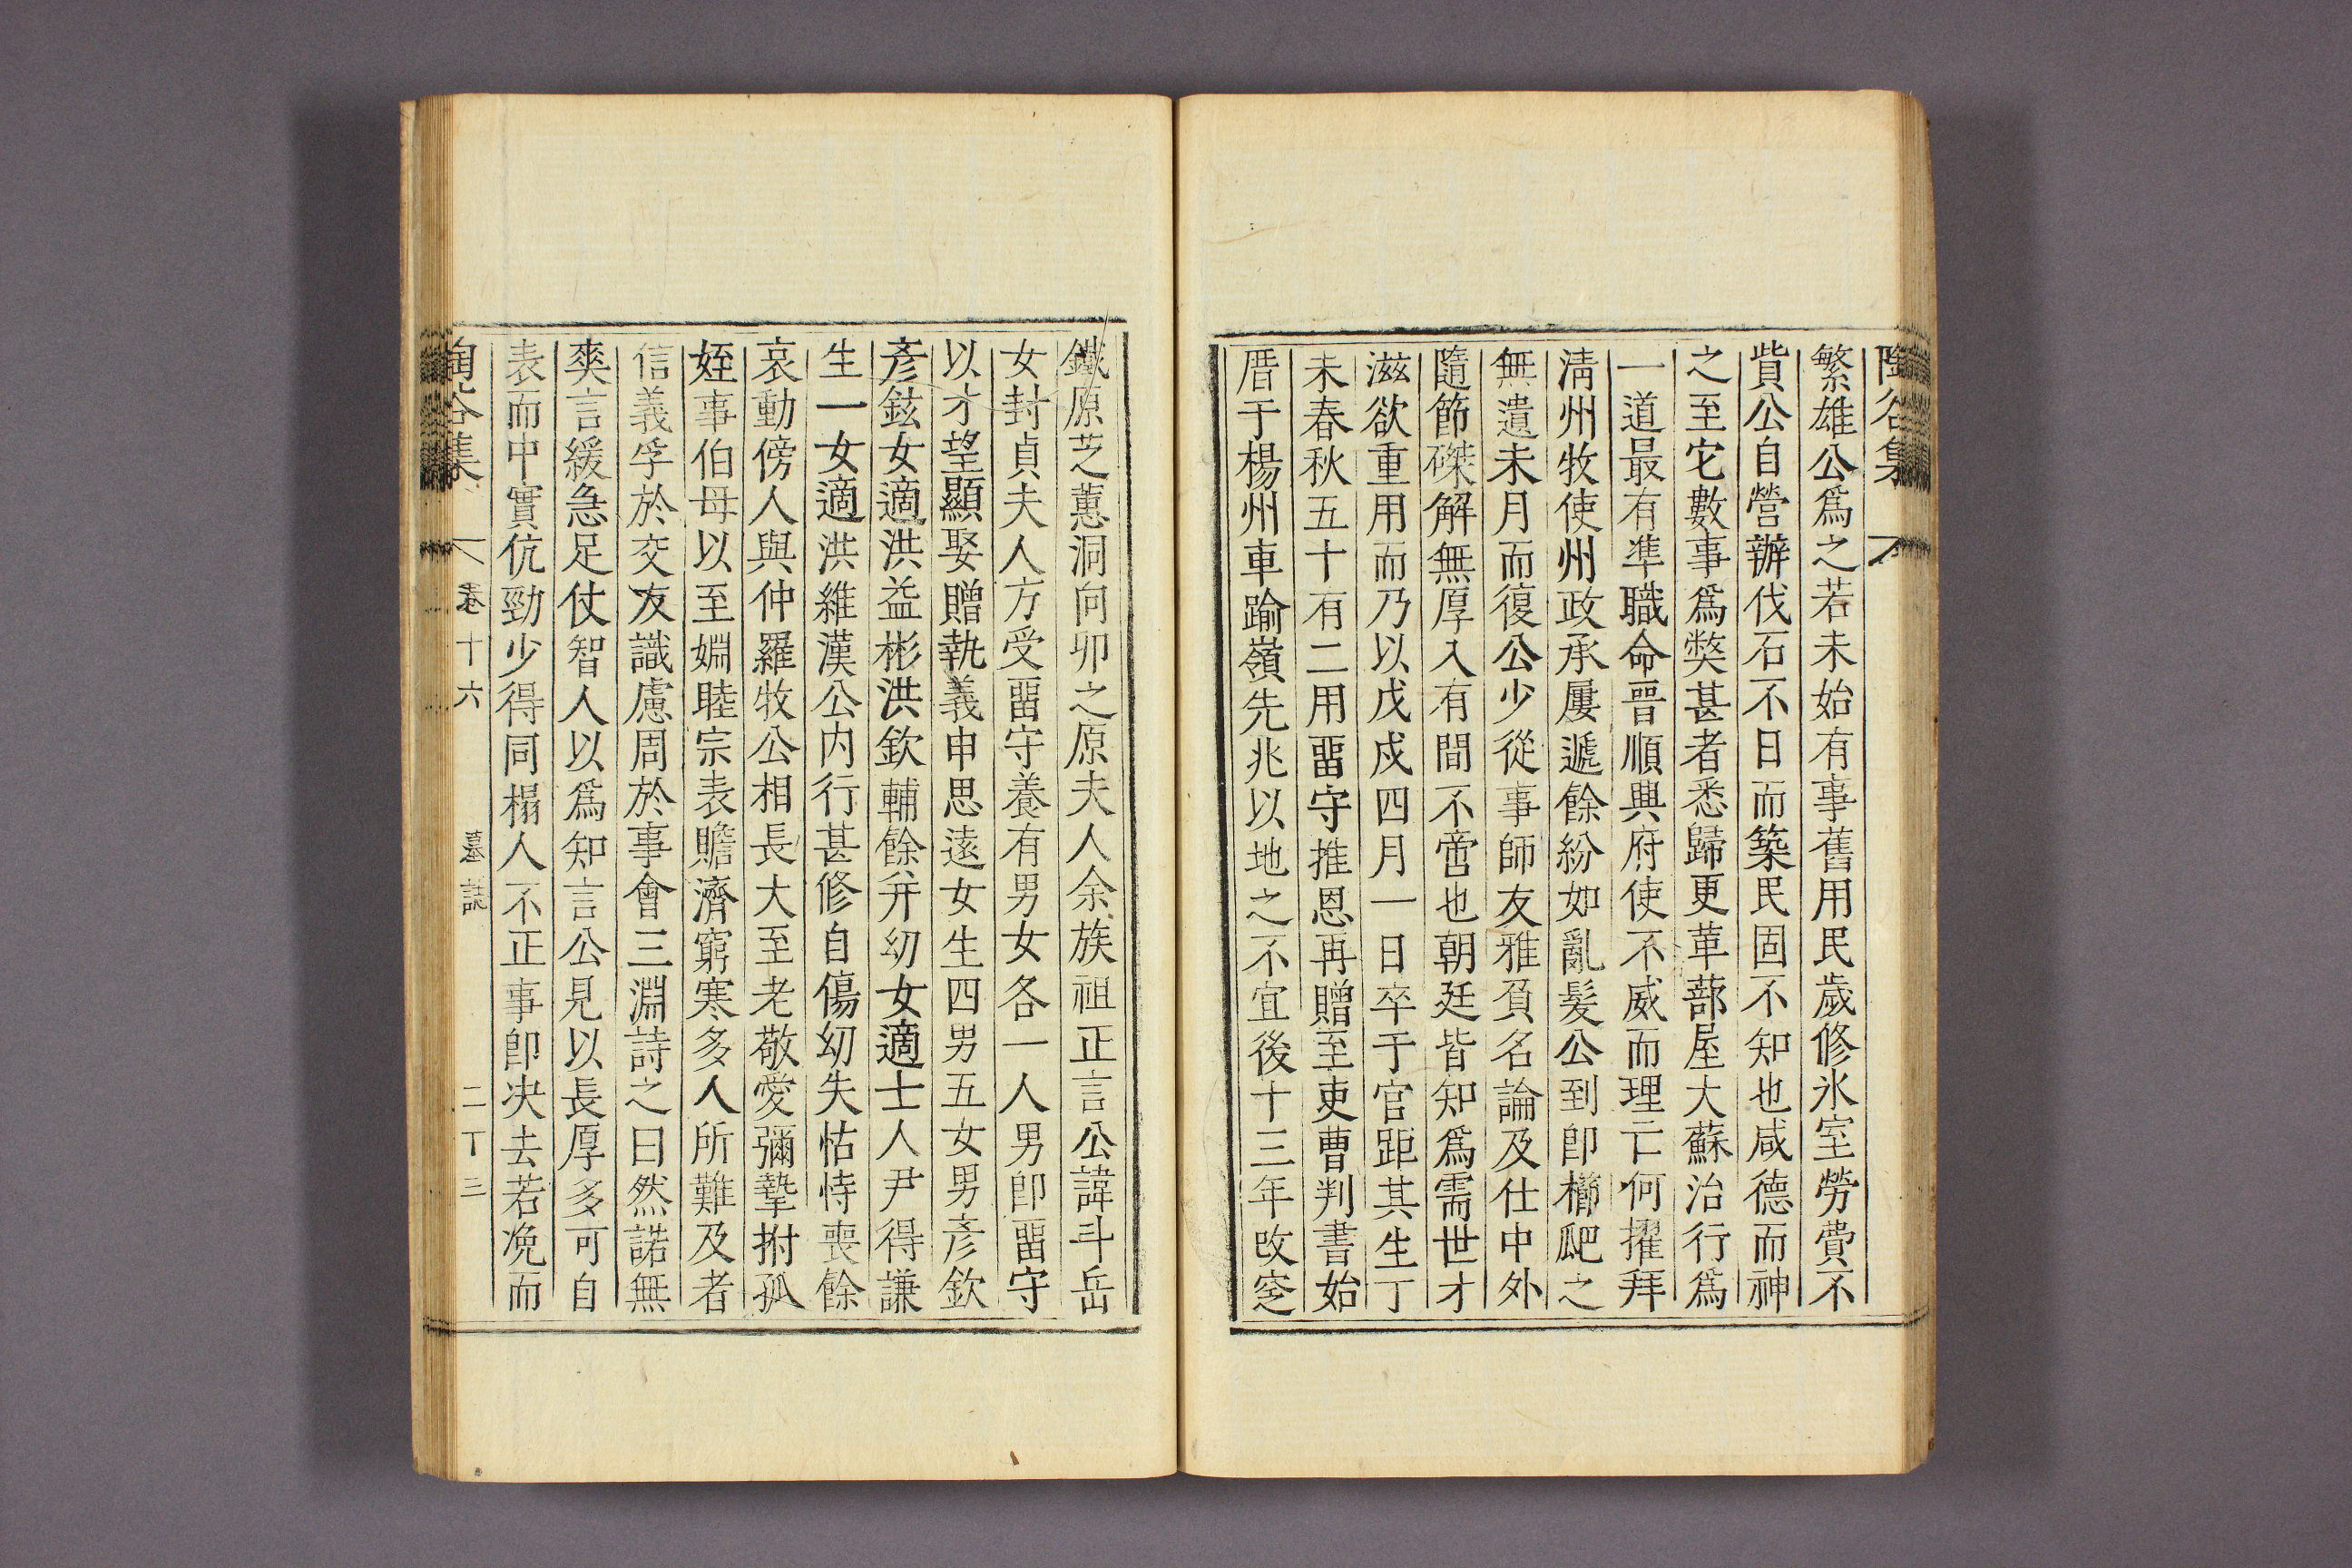 陶谷集
繁雄公爲之若未始有事舊用民歲修氷室勞費不
貲公自營辦伐石不日而築民固不知也咸德而神
之至它數事爲獘甚者悉歸更革蔀屋大蘇治行爲
一道最有準職命晉順興府使不威而理亡何擢拜
淸州牧使州政承屢遞餘紛如亂髮公到卽櫛爬之
無遺未月而復公少從事師友雅負名論及仕中外
隨節磔解無厚入有間不啻也朝廷皆知爲需世才
滋欲重用而乃以戊戌四月一日卒于官距其生丁
未春秋五十有二用畱守推恩再贈至吏曹判書始
厝于楊州車踰嶺先兆以地之不宜後十三年改窆
鐵原芝蕙洞向卯之原夫人余族祖正言公諱斗岳
女封貞夫人方受畱守養有男女各一人男卽畱守
以才望顯娶贈執義申思遠女生四男五女男彥欽
彥鉉女適洪益彬洪欽輔餘幷幼女適士人尹得謙
生一女適洪維漢公内行甚修自傷幼失怙恃喪餘
哀動傍人與仲羅牧公相長大至老敬愛彌摯拊孤
姪事伯母以至婣睦宗表贍濟窮寒多人所難及者
信義孚於交友識慮周於事會三淵詩之曰然諾無
爽言緩急足仗智人以爲知言公見以長厚多可自
表而中實伉勁少得同榻人不正事卽决去若浼而
陶谷集 卷十六 墓誌 二丁三